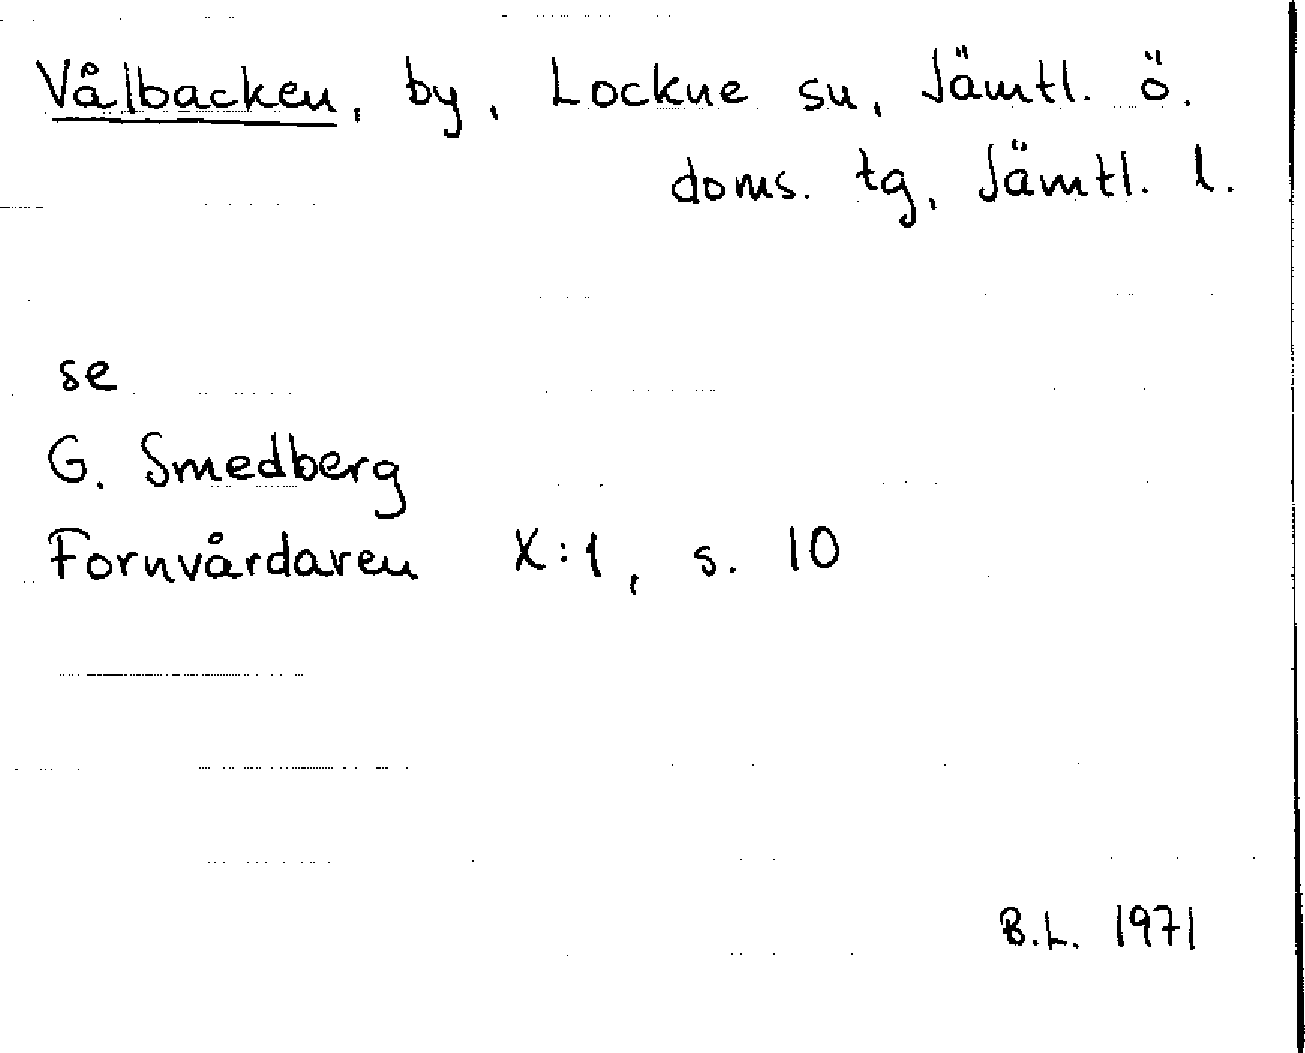 Vålbacken, by, Lockne sn, Jämtl. ö.
doms. tg, Jämtl. l.
se
G. Smedberg
Fornvårdaren X:1, s. 10
B.L. 1971